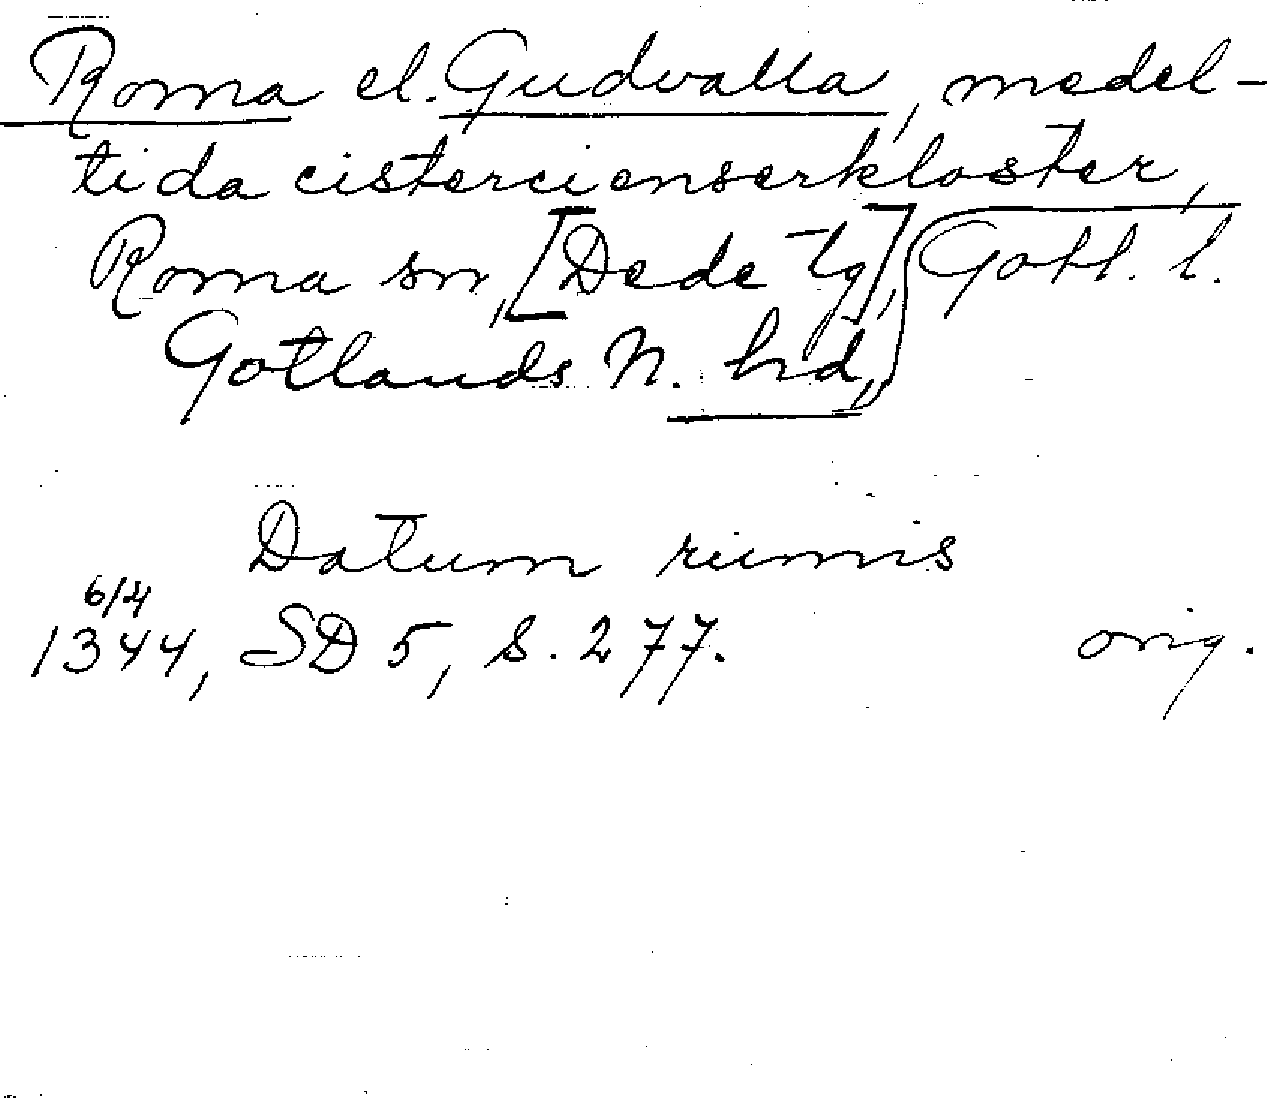 Roma el. Gudvalla, medel-
tida cistercienserkloster,
Roma sn, [Dede tg], Gotl. l.
Gotlands N. hd,
Datum rumis
6/4
1344, SD 5, S. 277. orig.